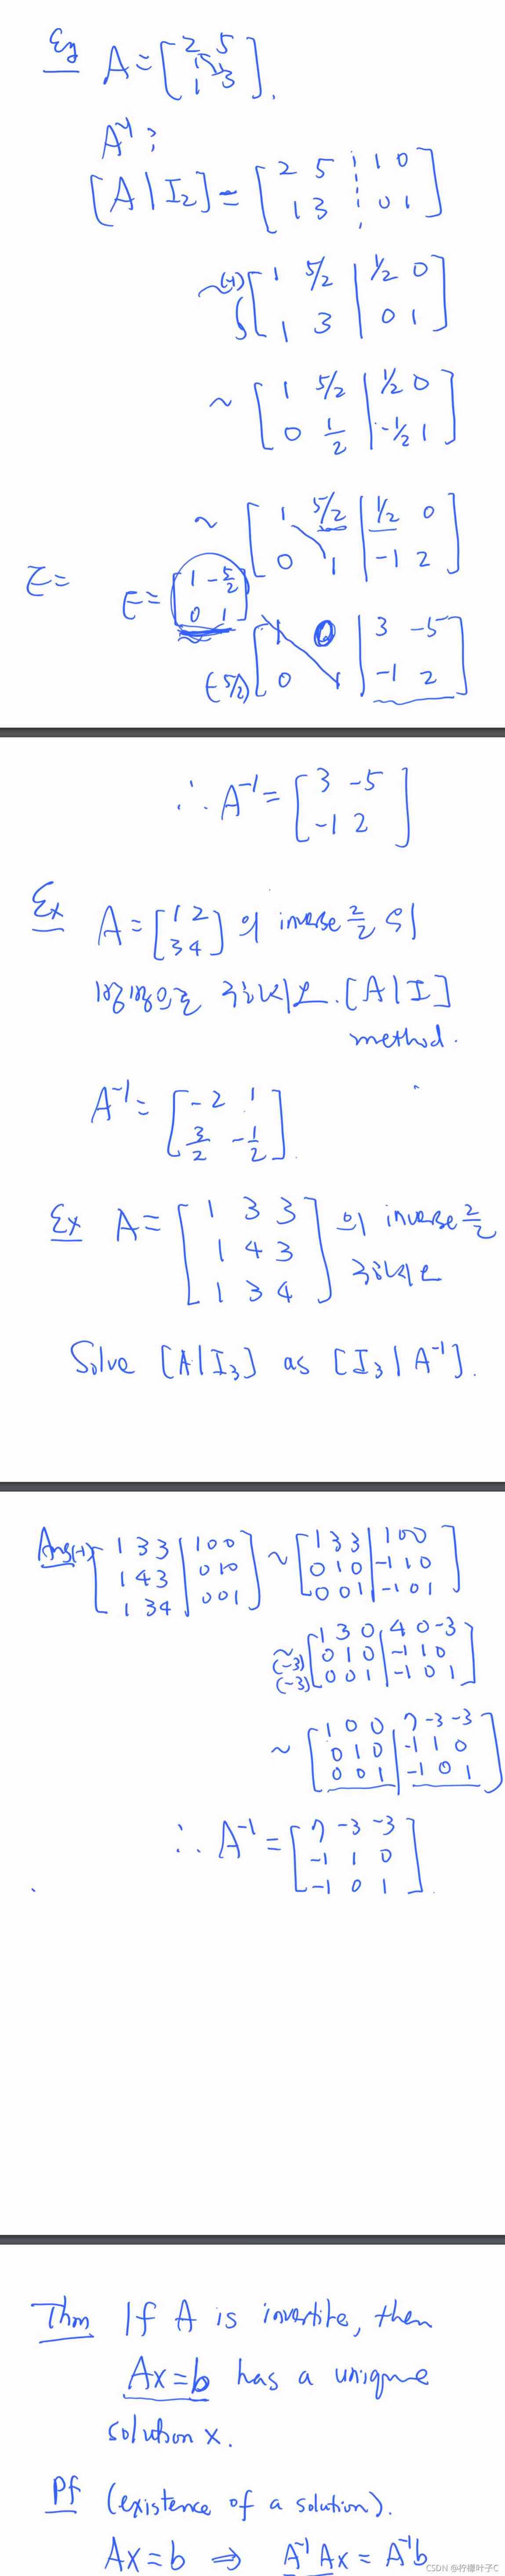 Eg A = [2 5
1 3].
A⁻¹ ;
[A | I₂] = [2 5 ¦ 1 0
1 3 ¦ 0 1]
~ (-1) [1 5/2 | 1/2 0
1 3 | 0 1]
~ [1 5/2 | 1/2 0
0 1/2 | -1/2 1]
~ [1 5/2 | 1/2 0
0 1 | -1 2]
E = E = [1 -5/2
0 1]
(-5/2) [1 0 | 3 -5
0 1 | -1 2]
∴ A⁻¹ = [3 -5
-1 2]
Ex A = [1 2
3 4] 의 inverse를
구하시오. [A | I]
method.
A⁻¹ = [-2 1
3/2 -1/2].
Ex A = [1 3 3
1 4 3
1 3 4] 의 inverse를
구하시오
Solve [A | I₃] as [I₃ | A⁻¹].
Ans (-1) [1 3 3 | 1 0 0
1 4 3 | 0 1 0
1 3 4 | 0 0 1] ~ [1 3 3 | 1 0 0
0 1 0 | -1 1 0
0 0 1 | -1 0 1]
~ (-3) (-3) [1 3 0 | 4 0 -3
0 1 0 | -1 1 0
0 0 1 | -1 0 1]
~ [1 0 0 | 7 -3 -3
0 1 0 | -1 1 0
0 0 1 | -1 0 1]
∴ A⁻¹ = [7 -3 -3
-1 1 0
-1 0 1].
Thm If A is invertite, then
Ax = b has a unique
solution x.
Pf (existence of a solution).
Ax = b ⇒ A⁻¹Ax = A⁻¹b
CSDN @柠檬叶子C